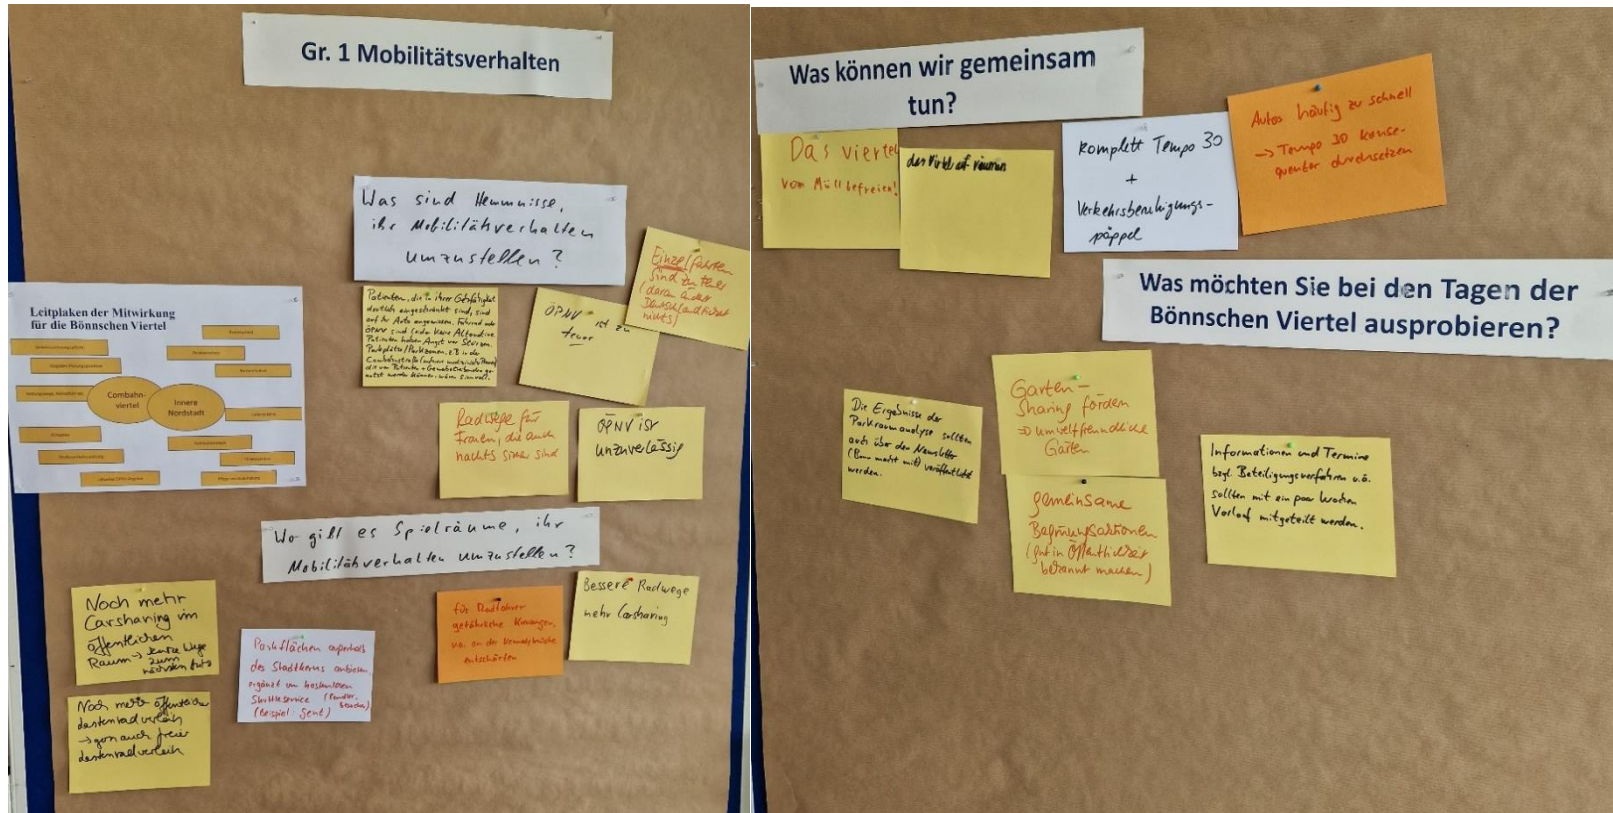 Gr. 1 Mobilitätsverhalten
Was sind Hemmnisse,
ihr Mobilitätverhalten
umzustellen?
Leitplaken der Mitwirkung
für die Bönnschen Viertel
Combahn-
viertel
Innere
Nordstadt
Patienten, die in ihrer Gehfähigkeit
deutlich eingeschränkt sind, sind
auf ihr Auto angewiesen. Fahrrad oder
ÖPNV sind keine Alternative
Patienten haben Angst vor Stürzen.
Parkplätze/Parkzonen, z.B. in der
Combahnstraße
die von Patienten + Gewerbetreibenden ge-
nutzt werden können, wären sinnvoll.
ÖPNV ist zu
teuer
Einzelfahrten
sind zu teuer
(daran ändert
Deutschlandticket
nichts)
Radwege für
Frauen, die auch
nachts sicher sind
ÖPNV ist
unzuverlässig
Wo gibt es Spielräume, ihr
Mobilitätverhalten umzustellen?
Noch mehr
Carsharing im
öffentlichen
Raum → kurze Wege
zum
nächsten Auto
Noch mehr öffentlicher
Lastenradverleih
→ gern auch freier
Lastenradverleih
Parkflächen außerhalb
des Stadtkerns anbieten,
ergänzt um kostenlosen
Shuttleservice
(Beispiel: Gent)
für Radfahrer
gefährliche Kreuzungen,
v.a. an der Kennedybrücke
entschärfen
Bessere Radwege
mehr Carsharing
Was können wir gemeinsam
tun?
Das Viertel
vom Müll befreien!
das Virtel auf räumen
Komplett Tempo 30
+
Verkehrsberuhigungs-
päppel
Autos häufig zu schnell
→ Tempo 30 konse-
quenter durchsetzen
Was möchten Sie bei den Tagen der
Bönnschen Viertel ausprobieren?
Die Ergebnisse der
Parkraumanalyse sollten
auch über den Newsletter
(Bonn macht mit) veröffentlicht
werden.
Garten-
Sharing fördern
⇒ umweltfreundliche
Gärten
gemeinsame
Begrünungsaktionen
(gut in Öffentlichkeit
bekannt machen)
Informationen und Termine
bzgl. Beteiligungsverfahren u.ä.
sollten mit ein paar Wochen
Vorlauf mitgeteilt werden.